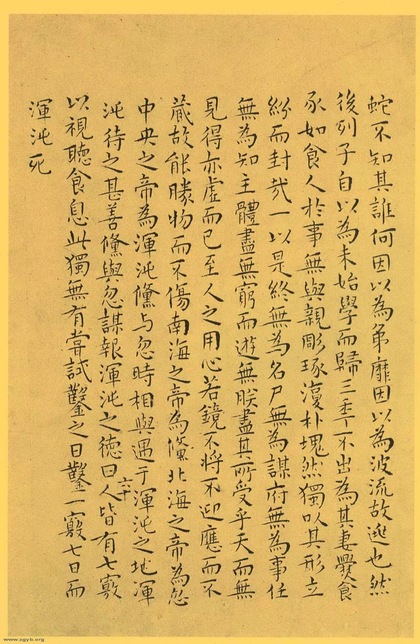 蛇不知其誰何因以為弟靡因以為波流故逃也然
後列子自以為未始學而歸三年不出為其妻爨食
豕如食人於事無與親彫琢復朴塊然獨以其形立
紛而封哉一以是終無為名尸無為謀府無為事任
無為知主體盡無窮而遊無朕盡其所受乎天而無
見得亦虛而已至人之用心若鏡不將不迎應而不
藏故能勝物而不傷南海之帝為儵北海之帝為忽
中央之帝為渾沌儵与忽時相與遇于渾沌之地渾
沌待之甚善儵與忽謀報渾沌之德曰人皆有七竅
以視聽食息此獨無有嘗試鑿之日鑿一竅七日而
渾沌死
www.zgyb.org